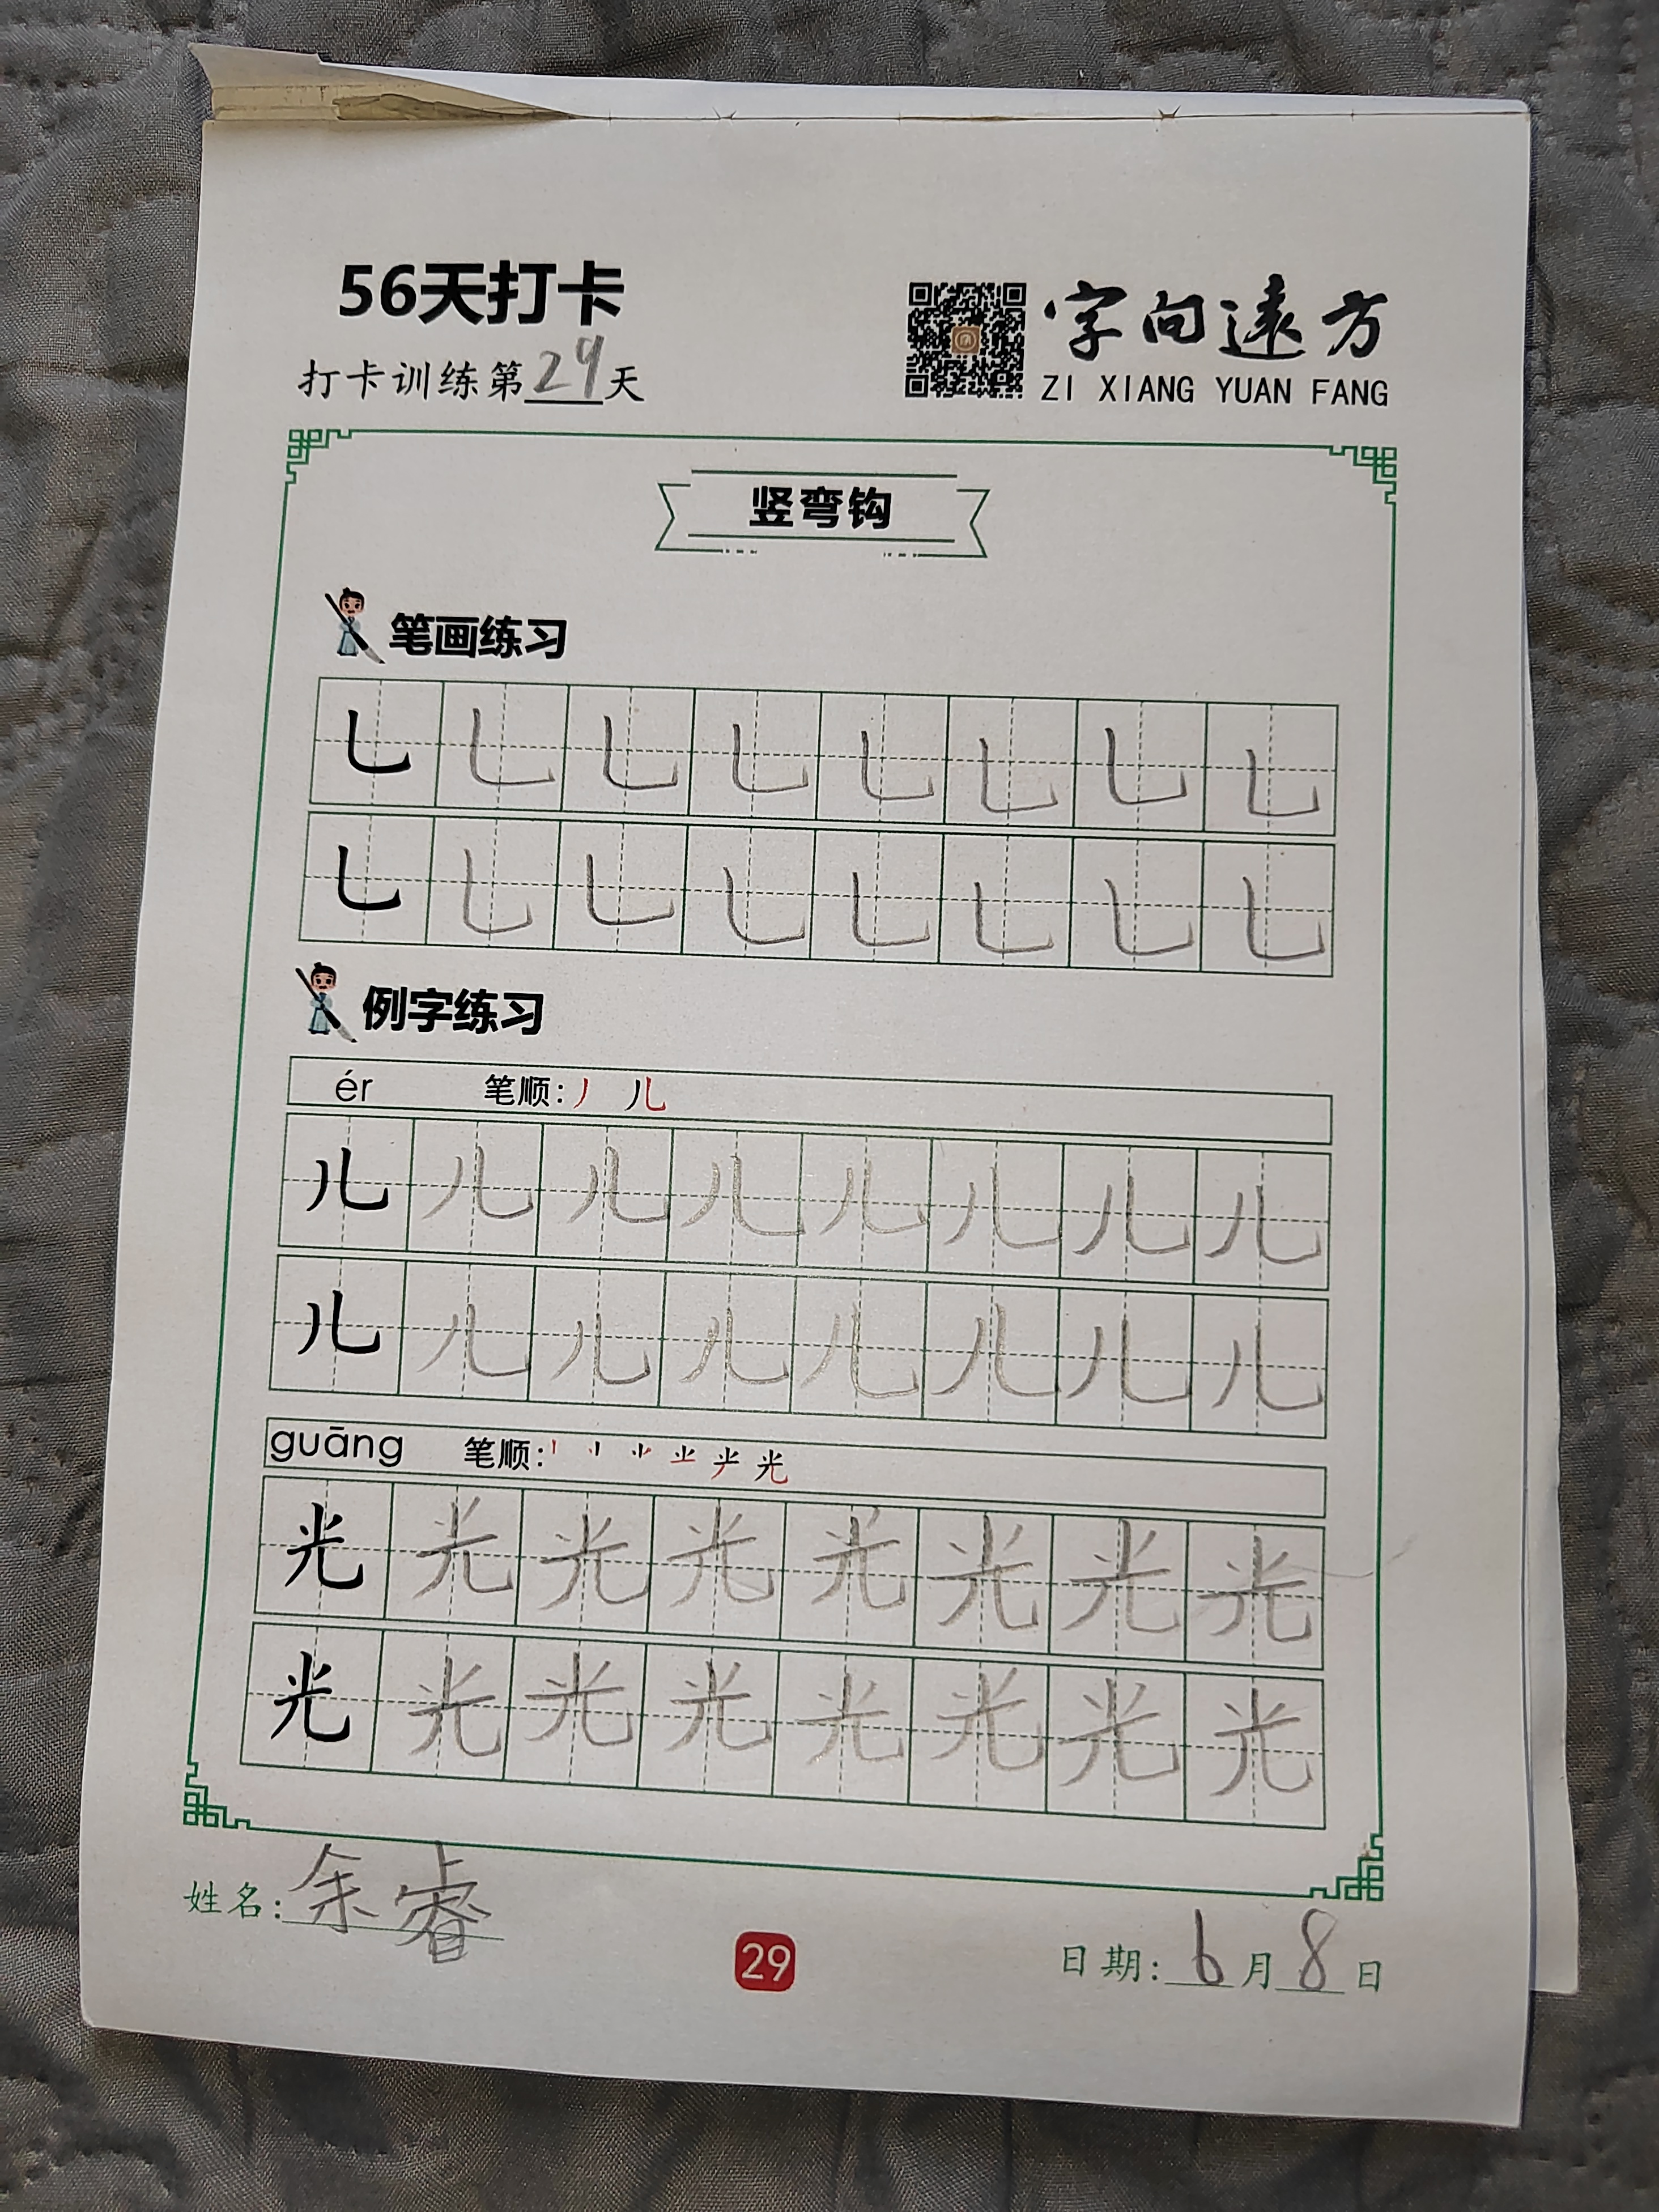 56天打卡
打卡训练第29天
字向遠方
ZI XIANG YUAN FANG
竖弯钩
笔画练习
乚 乚 乚 乚 乚 乚 乚 乚
乚 乚 乚 乚 乚 乚 乚 乚
例字练习
ér 笔顺: 丿 儿
儿 儿 儿 儿 儿 儿 儿 儿
儿 儿 儿 儿 儿 儿 儿 儿
guāng 笔顺: 光
光 光 光 光 光 光 光 光
光 光 光 光 光 光 光 光
姓名: 余睿
29
日期: 6月8日